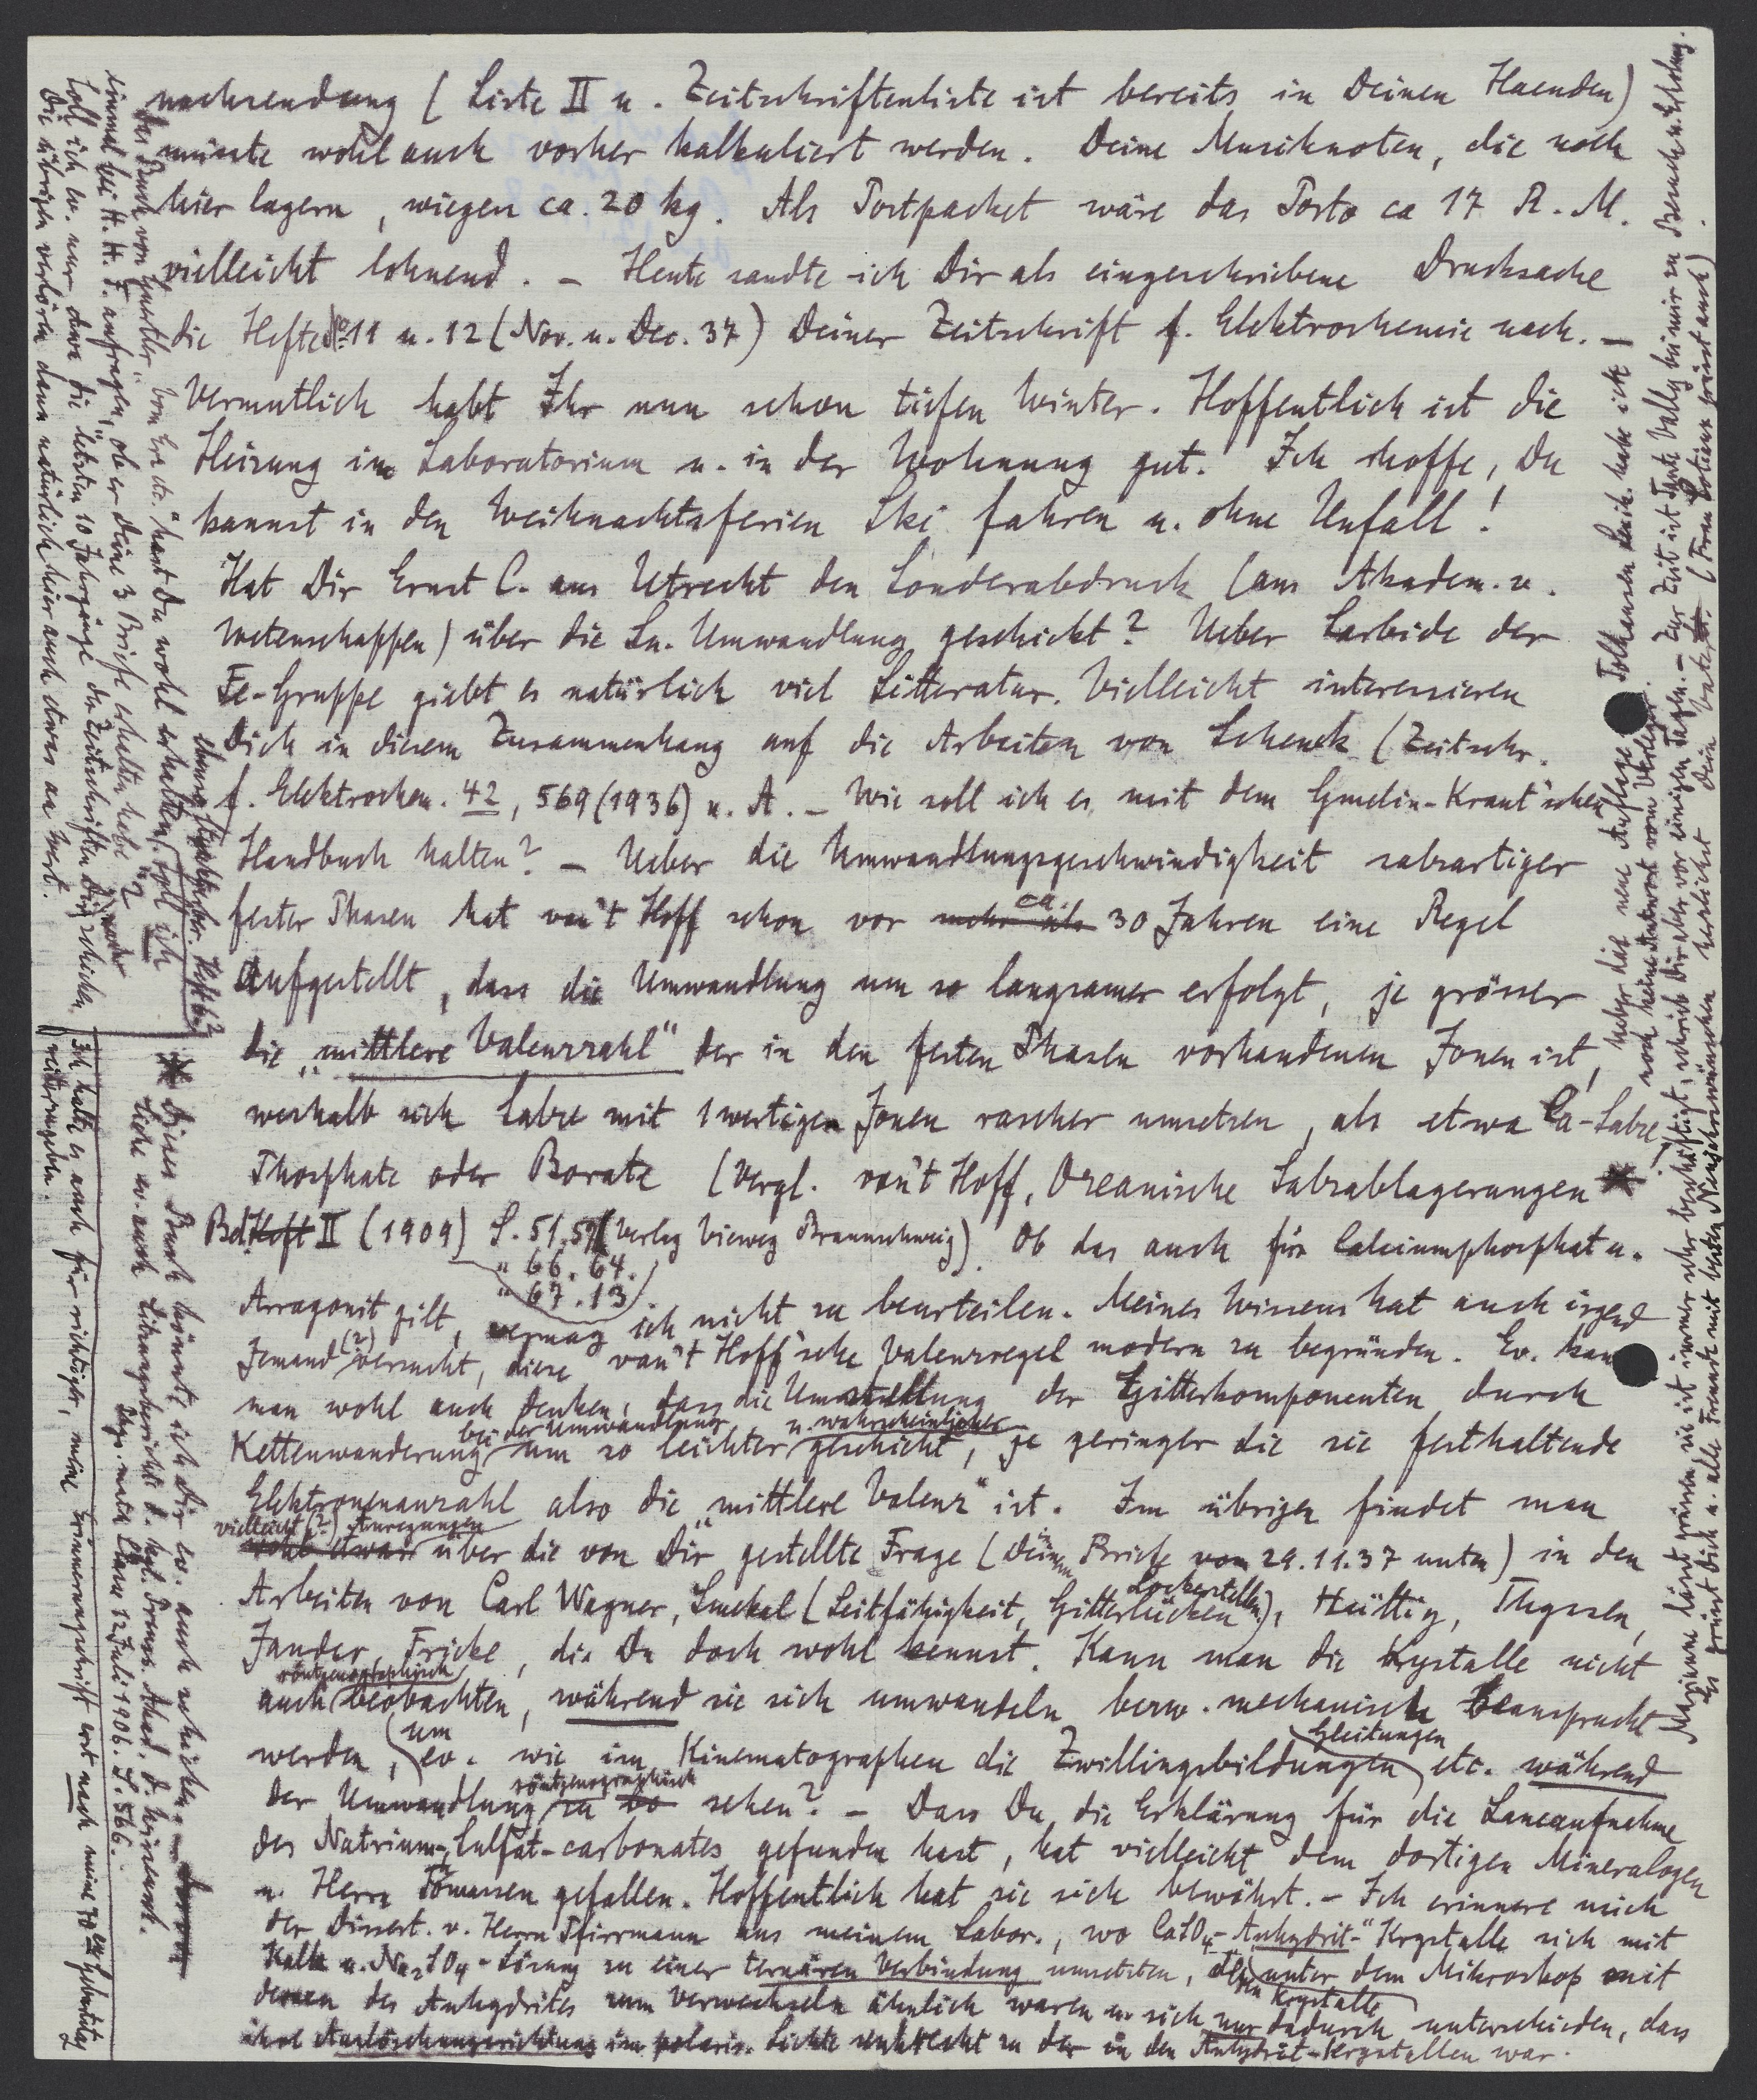 nachsendung (Liste II u. Zeitschriftenliste ist bereits in Deinen Haenden)
müsste wohl auch vorher kalkuliert werden. Deine Musiknoten, die noch
hier lagern, wiegen ca. 20 kg. Als Postpacket wäre das Porto ca 17 R. M.
vielleicht lohnend. – Heute sandte ich Dir als eingeschriebene Drucksache
die Hefte No 11 u. 12 (Nov. u. Dec. 37) Deiner Zeitschrift f. Elektrochemie nach. –
Vermutlich habt Ihr nun schon tiefen Winter. Hoffentlich ist die
Heizung im Laboratorium u. in der Wohnung gut. Ich hoffe, Du
kannst in den Weihnachtsferien Ski fahren u. ohne Unfall!
Hat Dir Ernst C. aus Utrecht den Sonderabdruck (aus Akadem. v.
Wetenschappen) über die Sn. Umwandlung geschickt? Ueber Carbide der
Fe-Gruppe giebt es natürlich viel Litteratur. Vielleicht interessieren
Dich in diesem Zusammenhang auf die Arbeiten von Schenck (Zeitschr.
f. Elektrochem. 42, 569 (1936) u. A. – Wie soll ich es mit dem Gmelin-Kraut'schen
Handbuch halten? – Ueber die Umwandlungsgeschwindigkeit salzartiger
fester Phasen hat van't Hoff schon vor mehr als ca. 30 Jahren eine Regel
aufgestellt, dass die Umwandlung um so langsamer erfolgt, je grösser
die „mittlere Valenzzahl" der in den festen Phasen vorhandenen Jonen ist,
weshalb sich Salze mit 1wertigen Jonen rascher umsetzen, als etwa Ca-Salze
Phosphate oder Borate (Vergl. van't Hoff, Ozeanische Salzablagerungen *
Bd. Heft II (1909) S. 51.59 (Verlag Vieweg Braunschweig). Ob das auch für Calciumphosphat u.
" 66. 64.
" 67. 13.
Arragonit gilt, vermag ich nicht zu beurteilen. Meines Wissens hat auch irgend
Jemand (?) versucht, diese van't Hoff'sche Valenzregel modern zu begründen. Ev. kann
man wohl auch denken, dass die Umstellung der Gitterkomponenten durch
Kettenwanderung bei der Umwandlung um so leichter u. wahrscheinlicher geschieht, je geringer die sie festhaltende
Elektronenanzahl also die „mittlere Valenz" ist. Im übrigen findet man
vielleicht (?) Anregungen wohl etwas über die von Dir gestellte Frage (Deinem Briefe vom 29.11.37 unten) in den
Arbeiten von Carl Wagner, Smekal (Leitfähigkeit, Gitterlücken Lockerstellen), Hüttig, Thyssen,
Jander, Fricke, die Du doch wohl kennst. Kann man die Krystalle nicht
auch röntgenographisch beobachten, während sie sich umwandeln bezw. mechanisch beansprucht
werden, um ev. wie im Kinematographen die Zwillingsbildungen Gleitungen etc. während
der Umwandlung röntgenographisch zu sehen? – Dass Du die Erklärung für die Laueaufnahme
des Natrium-Sulfat-carbonates gefunden hast, hat vielleicht dem dortigen Mineralogen
u. Herrn gefallen. Hoffentlich hat sie sich bewährt. – Ich erinnere mich
der Dissert. v. Herrn Pfirrmann aus meinem Labor., wo CaSO4-„Anhydrit-" Krystalle sich mit
Kalk u. Na2SO4-Lösung zu einer ternären Verbindung umsetzten, deren Krystalle unter dem Mikroskop mit
denen des Anhydrites zum Verwechseln ähnlich waren u. sich nur dadurch unterschieden, dass
ihre Auslöschungsrichtung im polaris. Lichte senkrecht zu der in den Anhydrit-Krystallen war.
Das Buch von „Quetler" hast Du wohl erhalten, soll ich
einmal bei H. H. F. anfragen, ob er Deine 3 Briefe erhalten habe?
Soll ich ev. nur etwa die letzten 10 Jahrgänge der Zeitschriften Dir schicken
Die übrigen verlören dann natürlich hier auch etwas an Wert.
* Dieses Buch könnte ich Dir ev. auch schicken.
Siehe ev. auch Sitzungsberichte d. kgl. Preuss. Akad. d. Wissensch.
math. Classe 12 Juli 1906. S. 566.
Ich halte es auch für richtiger, meine Erinnerungsschrift erst nach meine 70en Geburtstag
weiterzugeben.
Ueber die neue Auflage habe ich
noch keine Antwort vom Verleger.
Marianne lässt grüssen, sie ist immer sehr beschäftigt, schrieb Dir aber vor einigen Tagen. – Zur Zeit ist Tante Vally bei mir zu Besuch u. Erholung.
Es grüsst Dich u. alle Freunde mit besten Neujahrswünschen herzlichst Dein Vater.